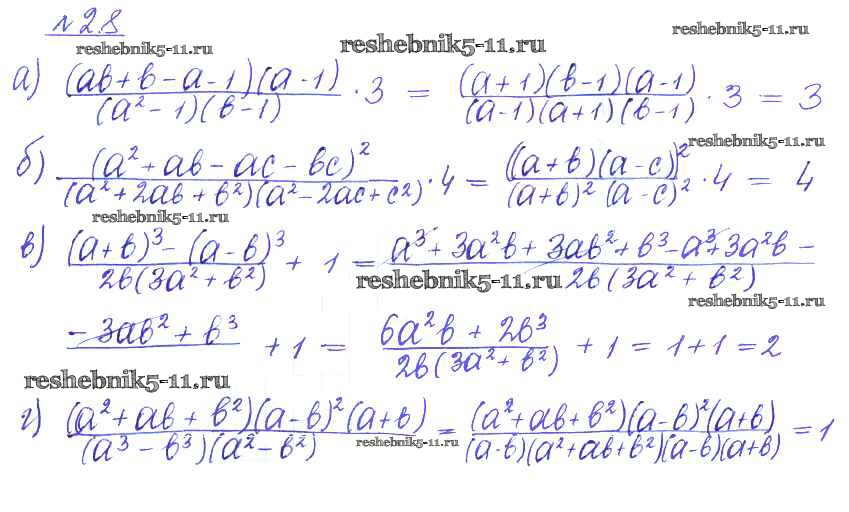 № 2.8
reshebnik5-11.ru reshebnik5-11.ru reshebnik5-11.ru
а) (ab+b-a-1)(a-1)/(a²-1)(b-1) · 3 = (a+1)(b-1)(a-1)/(a-1)(a+1)(b-1) · 3 = 3
reshebnik5-11.ru
б) (a²+ab-ac-bc)²/(a²+2ab+b²)(a²-2ac+c²) · 4 = ((a+b)(a-c))²/(a+b)²(a-c)² · 4 = 4
reshebnik5-11.ru
в) (a+b)³-(a-b)³/2b(3a²+b²) + 1 = a³+3a²b+3ab²+b³-a³+3a²b-/2b(3a²+b²)
reshebnik5-11.ru
reshebnik5-11.ru
-3ab²+b³ + 1 = 6a²b+2b³/2b(3a²+b²) + 1 = 1+1 = 2
reshebnik5-11.ru
г) (a²+ab+b²)(a-b)²(a+b)/(a³-b³)(a²-b²) = (a²+ab+b²)(a-b)²(a+b)/(a-b)(a²+ab+b²)(a-b)(a+b) = 1
reshebnik5-11.ru